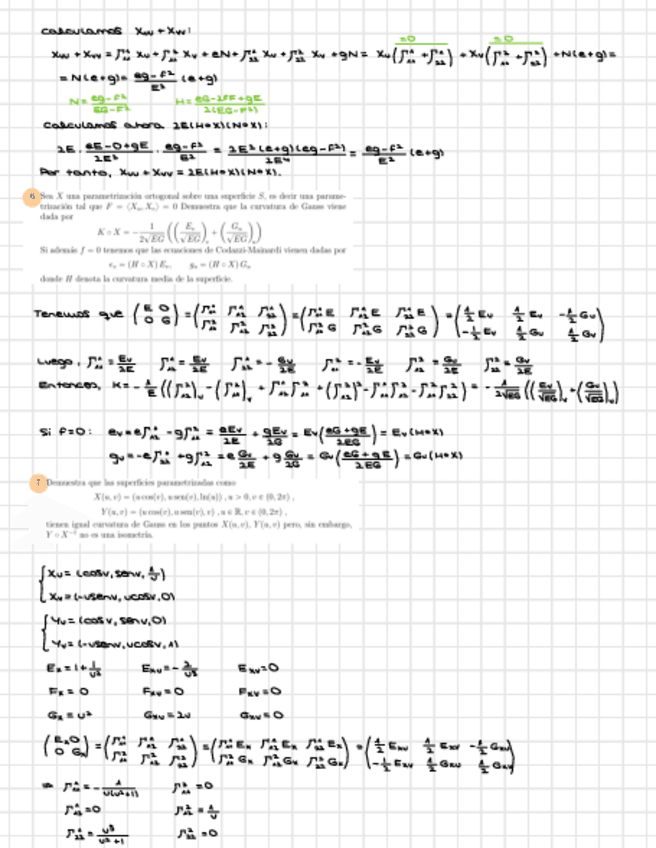 calculamos Xuu + Xvv:
Xuu + Xvv = Γ¹₁₁ Xu + Γ²₁₁ Xv + eN + Γ¹₂₂ Xu + Γ²₂₂ Xv + gN = Xu(Γ¹₁₁ + Γ¹₂₂) + Xv(Γ²₁₁ + Γ²₂₂) + N(e+g) =
=0 =0
= N(e+g) = eg-f²/E² (e+g)
N = eg-f²/EG-F² H = eG-2fF+gE/2(EG-F²)
Calculamos ahora 2E(H∘X)(N∘X):
2E · eE-0+gE/2E² · eg-f²/E² = 2E²(e+g)(eg-f²)/2E⁴ = eg-f²/E² (e+g)
Por tanto, Xuu + Xvv = 2E(H∘X)(N∘X).
6 Sea X una parametrización ortogonal sobre una superficie S, es decir una parame-
trización tal que F = ⟨Xu, Xv⟩ = 0 Demuestra que la curvatura de Gauss viene
dada por
K ∘ X = - 1/2√EG ((Ev/√EG)v + (Gu/√EG)u)
Si además f = 0 tenemos que las ecuaciones de Codazzi-Mainardi vienen dadas por
ev = (H ∘ X) Ev, gu = (H ∘ X) Gu
donde H denota la curvatura media de la superficie.
Tenemos que (E 0 / 0 G) = (Γ¹₁₁ Γ¹₁₂ Γ¹₂₂ / Γ²₁₁ Γ²₁₂ Γ²₂₂) = (Γ¹₁₁E Γ¹₁₂E Γ¹₂₂E / Γ²₁₁G Γ²₁₂G Γ²₂₂G) = (1/2 Eu 1/2 Ev -1/2 Gu / -1/2 Ev 1/2 Gu 1/2 Gv)
Luego, Γ¹₁₁ = Eu/2E Γ¹₁₂ = Ev/2E Γ¹₂₂ = - Gu/2E Γ²₁₁ = - Ev/2G Γ²₁₂ = Gu/2G Γ²₂₂ = Gv/2G
Entonces, K = - 1/E ((Γ²₁₂)u - (Γ²₁₁)v + Γ¹₁₂ Γ²₁₁ + (Γ²₁₂)² - Γ²₁₁ Γ²₂₂ - Γ¹₁₁ Γ²₁₂) = - 1/2√EG ((Ev/√EG)v + (Gu/√EG)u)
Si f=0: ev = eΓ¹₁₂ - gΓ²₁₁ = eEv/2E + gEv/2G = Ev(eG+gE/2EG) = Ev(H∘X)
gu = -eΓ¹₂₂ + gΓ²₁₂ = e Gu/2E + g Gu/2G = Gu(eG+gE/2EG) = Gu(H∘X)
7 Demuestra que las superficies parametrizadas como
X(u, v) = (u cos(v), u sen(v), ln(u)) , u > 0, v ∈ (0, 2π) ,
Y(u, v) = (u cos(v), u sen(v), v) , u ∈ ℝ, v ∈ (0, 2π) ,
tienen igual curvatura de Gauss en los puntos X(u, v), Y(u, v) pero, sin embargo,
Y ∘ X⁻¹ no es una isometría.
Xu = (cosv, senv, 1/u)
Xv = (-usenv, ucosv, 0)
Yu = (cosv, senv, 0)
Yv = (-usenv, ucosv, 1)
Ex = 1+1/u² Exu = - 2/u³ Exv = 0
Fx = 0 Fxu = 0 Fxv = 0
Gx = u² Gxu = 2u Gxv = 0
(Ex 0 / 0 Gx) = (Γ¹₁₁ Γ¹₁₂ Γ¹₂₂ / Γ²₁₁ Γ²₁₂ Γ²₂₂) = (Γ¹₁₁Ex Γ¹₁₂Ex Γ¹₂₂Ex / Γ²₁₁Gx Γ²₁₂Gx Γ²₂₂Gx) = (1/2 Exu 1/2 Exv -1/2 Gxu / -1/2 Exv 1/2 Gxu 1/2 Gxv)
⇒ Γ¹₁₁ = - 1/u(u²+1) Γ²₁₁ = 0
Γ¹₁₂ = 0 Γ²₁₂ = 1/u
Γ¹₂₂ = - u³/u²+1 Γ²₂₂ = 0